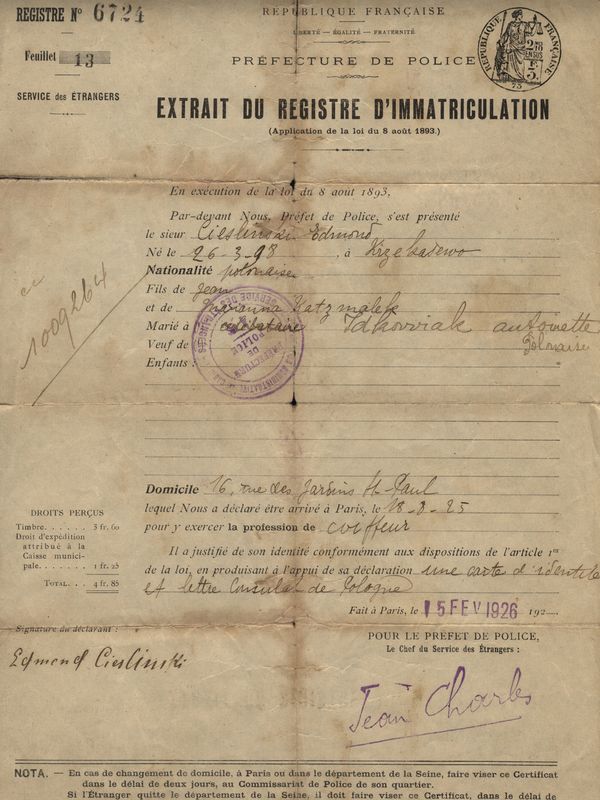 REGISTRE No 6724
Feuillet 13
SERVICE des ÉTRANGERS
RÉPUBLIQUE FRANÇAISE
LIBERTÉ — ÉGALITÉ — FRATERNITÉ
PRÉFECTURE DE POLICE
RÉPUBLIQUE FRANÇAISE
EXTRAIT DU REGISTRE D'IMMATRICULATION
(Application de la loi du 8 août 1893.)
En exécution de la loi du 8 août 1893,
Par-devant Nous, Préfet de Police, s'est présenté
le sieur Cieslinski Edmond
Né le 26-3-98, à
Nationalité polonaise
Fils de Jean
et de Maryanna
Marié à célibataire antoinette
Polonaise
Veuf de
Enfants :
1009264
Domicile 16, rue des Jardins St Paul
lequel Nous a déclaré être arrivé à Paris, le 18-8-25
pour y exercer la profession de coiffeur
Il a justifié de son identité conformément aux dispositions de l'article 1er
de la loi, en produisant à l'appui de sa déclaration une carte d'identité
et lettre Consulat de Pologne
Fait à Paris, le 15 FEV 1926 192
DROITS PERÇUS
Timbre. . . . . . 3 fr. 60
Droit d'expédition
attribué à la
Caisse munici-
pale. . . . . . . 1 fr. 25
TOTAL. . . 4 fr. 85
Signature du déclarant :
Edmond Cieslinski
POUR LE PRÉFET DE POLICE,
Le Chef du Service des Étrangers :
Jean Charles
NOTA. — En cas de changement de domicile, à Paris ou dans le département de la Seine, faire viser ce Certificat
dans le délai de deux jours, au Commissariat de Police de son quartier.
Si l'Étranger quitte le département de la Seine, il doit faire viser ce Certificat, dans le délai de